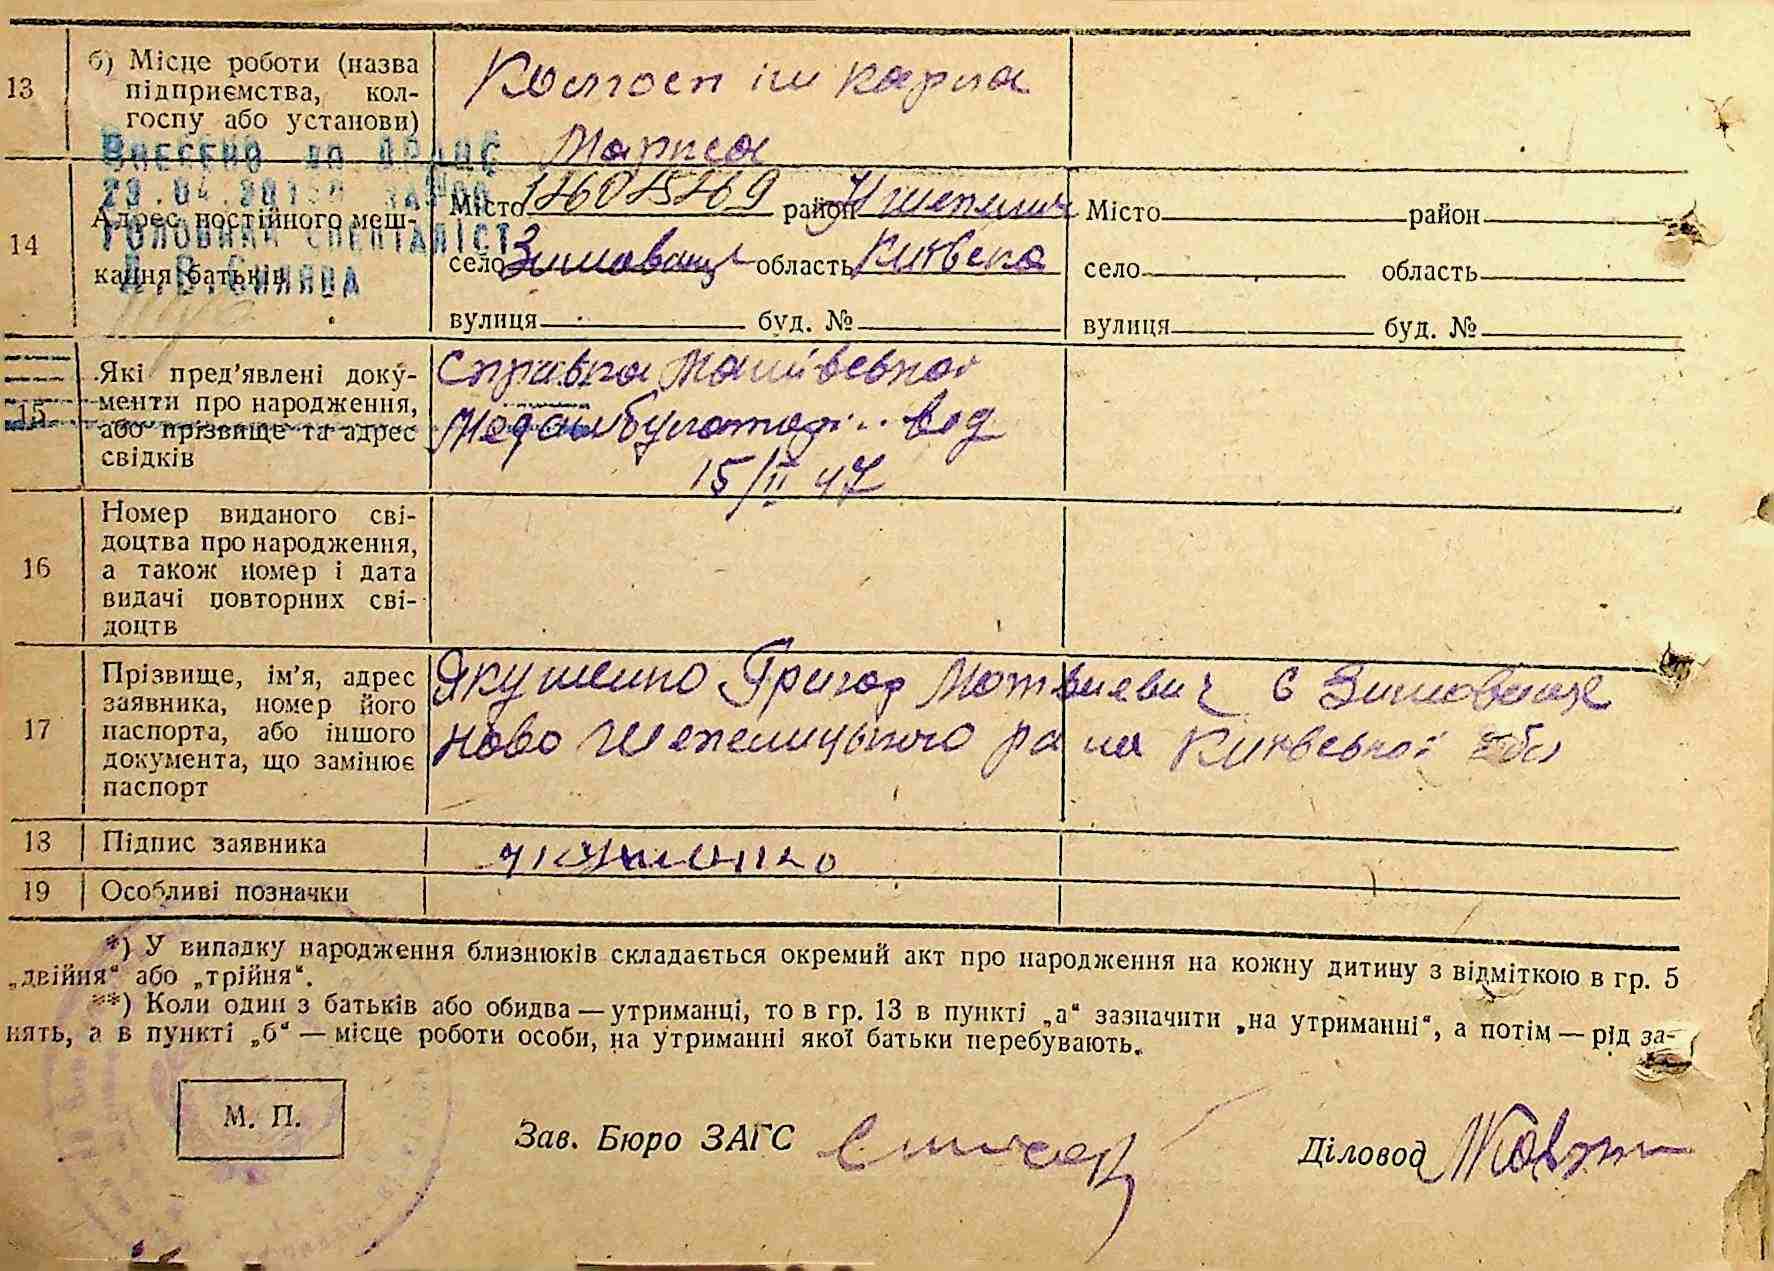 13
б) Місце роботи (назва
підприємства, кол-
госпу або установи)
Колгосп ім карла
Маркса
Внесено до ДРАЦС
14
Адрес постійного меш-
кання батьків
Головний спеціаліст
Місто район Н шепелич Місто район
село Зимовище область Київська село область
вулиця буд. № вулиця буд. №
15
Які пред'явлені доку-
менти про народження,
або прізвище та адрес
свідків
Справка Машівської
Медамбулаторії від
15/II 47
16
Номер виданого сві-
доцтва про народження,
а також номер і дата
видачі повторних сві-
доцтв
17
Прізвище, ім'я, адрес
заявника, номер його
паспорта, або іншого
документа, що замінює
паспорт
Якушенко Григор Мотвиевич с Зимовище
Ново Шепелицького ра на Київської обл
18 Підпис заявника
Якушенко
19 Особливі позначки
*) У випадку народження близнюків складається окремий акт про народження на кожну дитину з відміткою в гр. 5
„двійня“ або „трійня“.
**) Коли один з батьків або обидва — утриманці, то в гр. 13 в пункті „а“ зазначити „на утриманні“, а потім — рід за-
нять, а в пункті „б“ — місце роботи особи, на утриманні якої батьки перебувають.
М. П.
Зав. Бюро ЗАГС
Діловод